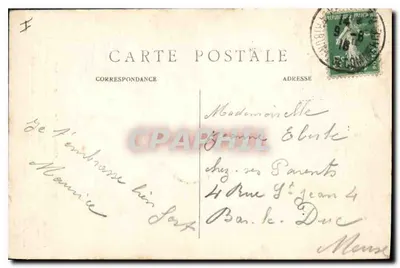 I
CARTE POSTALE
CORRESPONDANCE
ADRESSE
Je t'embrasse bien
fort
Maurice
Mademoiselle
chez ses Parents
4 Rue St Jean 4
Bar-le-Duc
Meuse